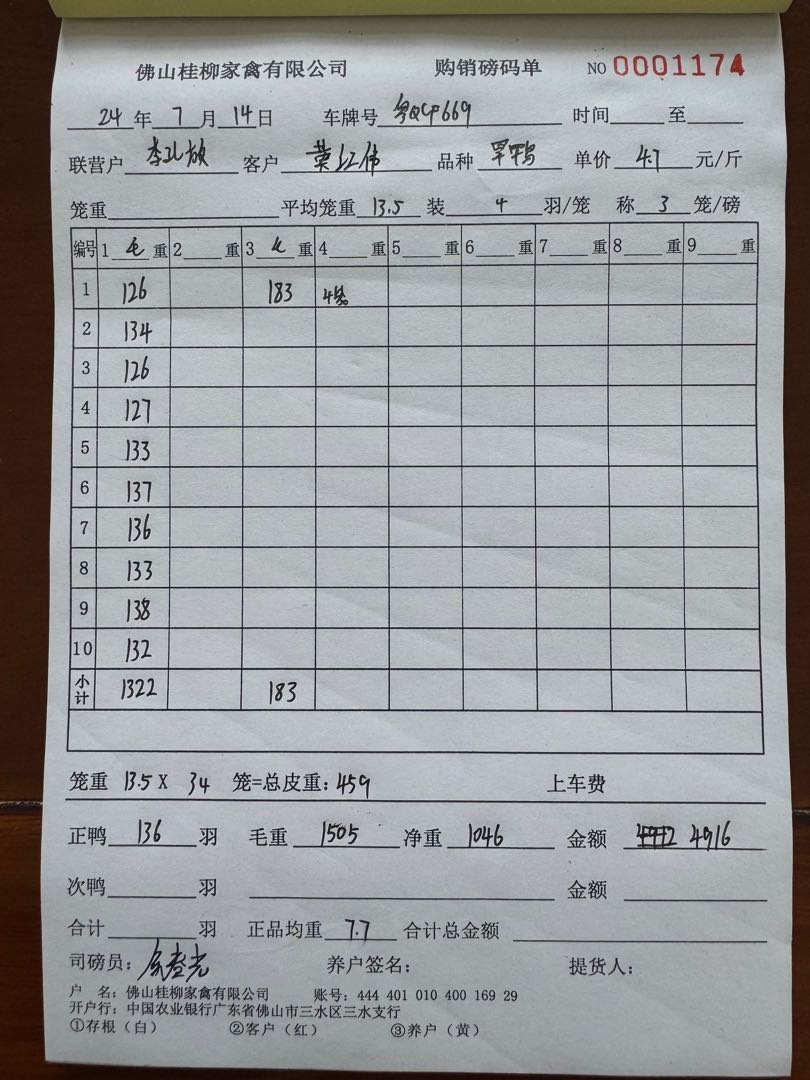 佛山桂柳家禽有限公司 购销磅码单 NO 0001174
24 年 7 月 14 日 车牌号 时间 至
联营户 客户 品种 单价 4.7 元/斤
笼重 平均笼重 13.5 装 4 羽/笼 称 3 笼/磅
编号 1 毛 重 2 重 3 毛 重 4 重 5 重 6 重 7 重 8 重 9 重
1 126 183 4笼
2 134
3 126
4 127
5 133
6 137
7 136
8 133
9 138
10 132
小计 1322 183
笼重 13.5 X 34 笼=总皮重: 459 上车费
正鸭 136 羽 毛重 1505 净重 1046 金额 4916
次鸭 羽 金额
合计 羽 正品均重 7.7 合计总金额
司磅员: 养户签名: 提货人:
户 名: 佛山桂柳家禽有限公司 账号: 444 401 010 400 169 29
开户行: 中国农业银行广东省佛山市三水区三水支行
①存根(白) ②客户(红) ③养户(黄)